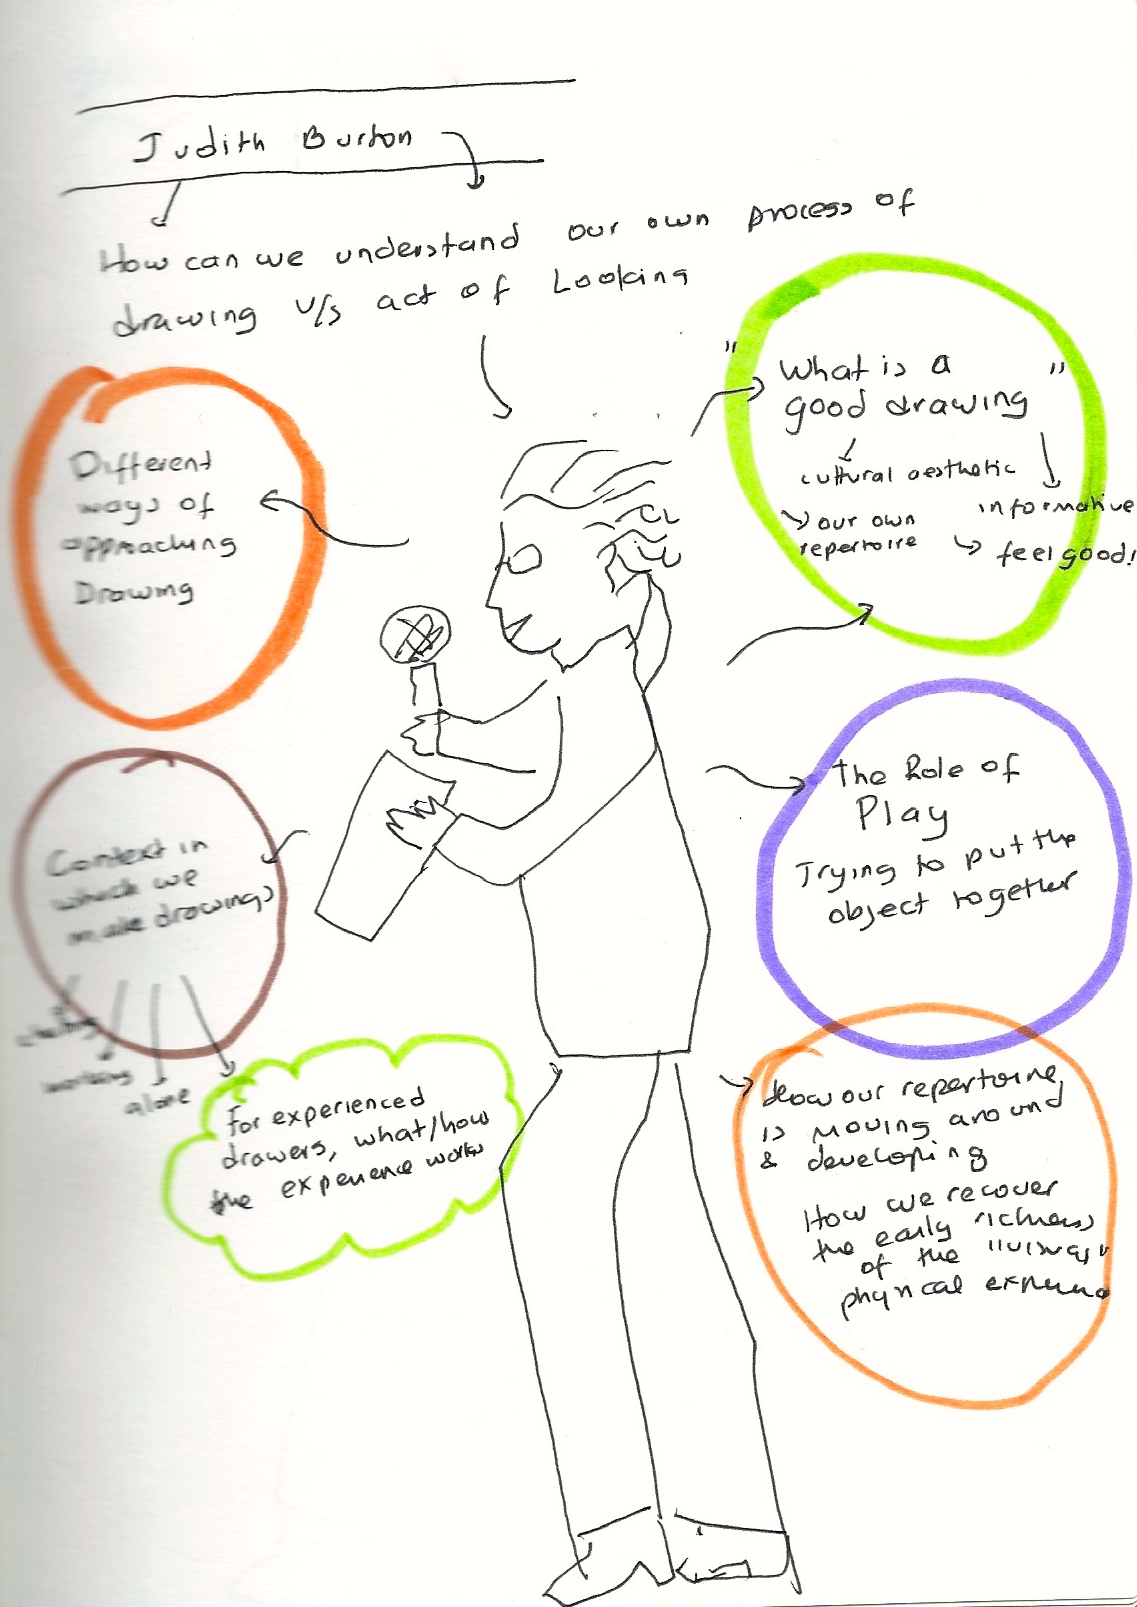 Judith Burton
How can we understand our own process of
drawing v/s act of Looking
"What is a
good drawing"
cultural aesthetic
informative
our own
repertoire
feel good!
Different
ways of
approaching
Drawing
The Role of
Play
Trying to put the
object together
Context in
which we
make drawings
working
alone
For experienced
drawers, what/how
the experience works
How our repertoire
is moving around
& developing
How we recover
the early richness
of the
physical